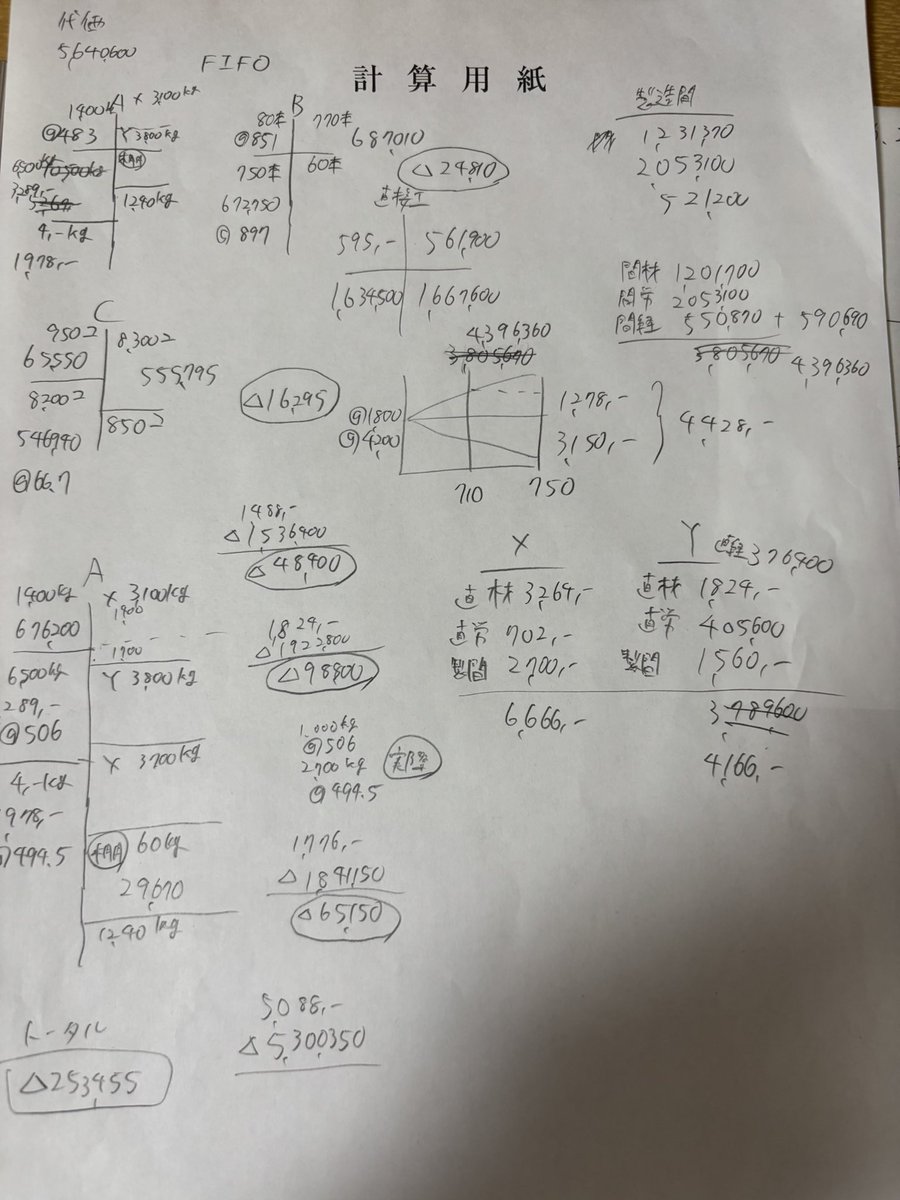 代価
5,640,600
FIFO
計算用紙
A
1,400kg
X 3,100kg
@483
Y 3,800kg
6,500kg
10,500kg
棚
3,289,-
1,240kg
4,-kg
1,978,-
B
80本
770本
@851
687,010
750本
60本
△24,810
672,750
@897
直接工
595,-
561,900
1,634,500
1,667,600
製造間
1,231,370
2,053,100
521,200
間材 1,201,700
間労 2,053,100
間経 550,870 + 590,690
3,805,670
4,396,360
C
950コ
8,300コ
65,550
555,795
8,200コ
850コ
546,940
@66.7
△16,295
4,396,360
3,805,670
@1,800
@4,200
1,278,-
3,150,-
4,428,-
710
750
1,488,-
△1,536,400
△48,400
A
1,400kg
X 3,100kg
1,400
676,200
1,700
6,500kg
Y 3,800kg
289,-
@506
X 3,700kg
4,-kg
978,-
494.5
棚 60kg
29,670
1,240kg
1,824,-
△1,922,800
△98,800
1,000kg
@506
2,700kg
@494.5
実際
1,776,-
△1,841,150
△65,150
X
直材 3,264,-
直労 702,-
製間 2,700,-
6,666,-
Y
直経 376,400
直材 1,824,-
直労 405,600
製間 1,560,-
3,789,600
4,166,-
5,088,-
△5,300,350
トータル
△253,455